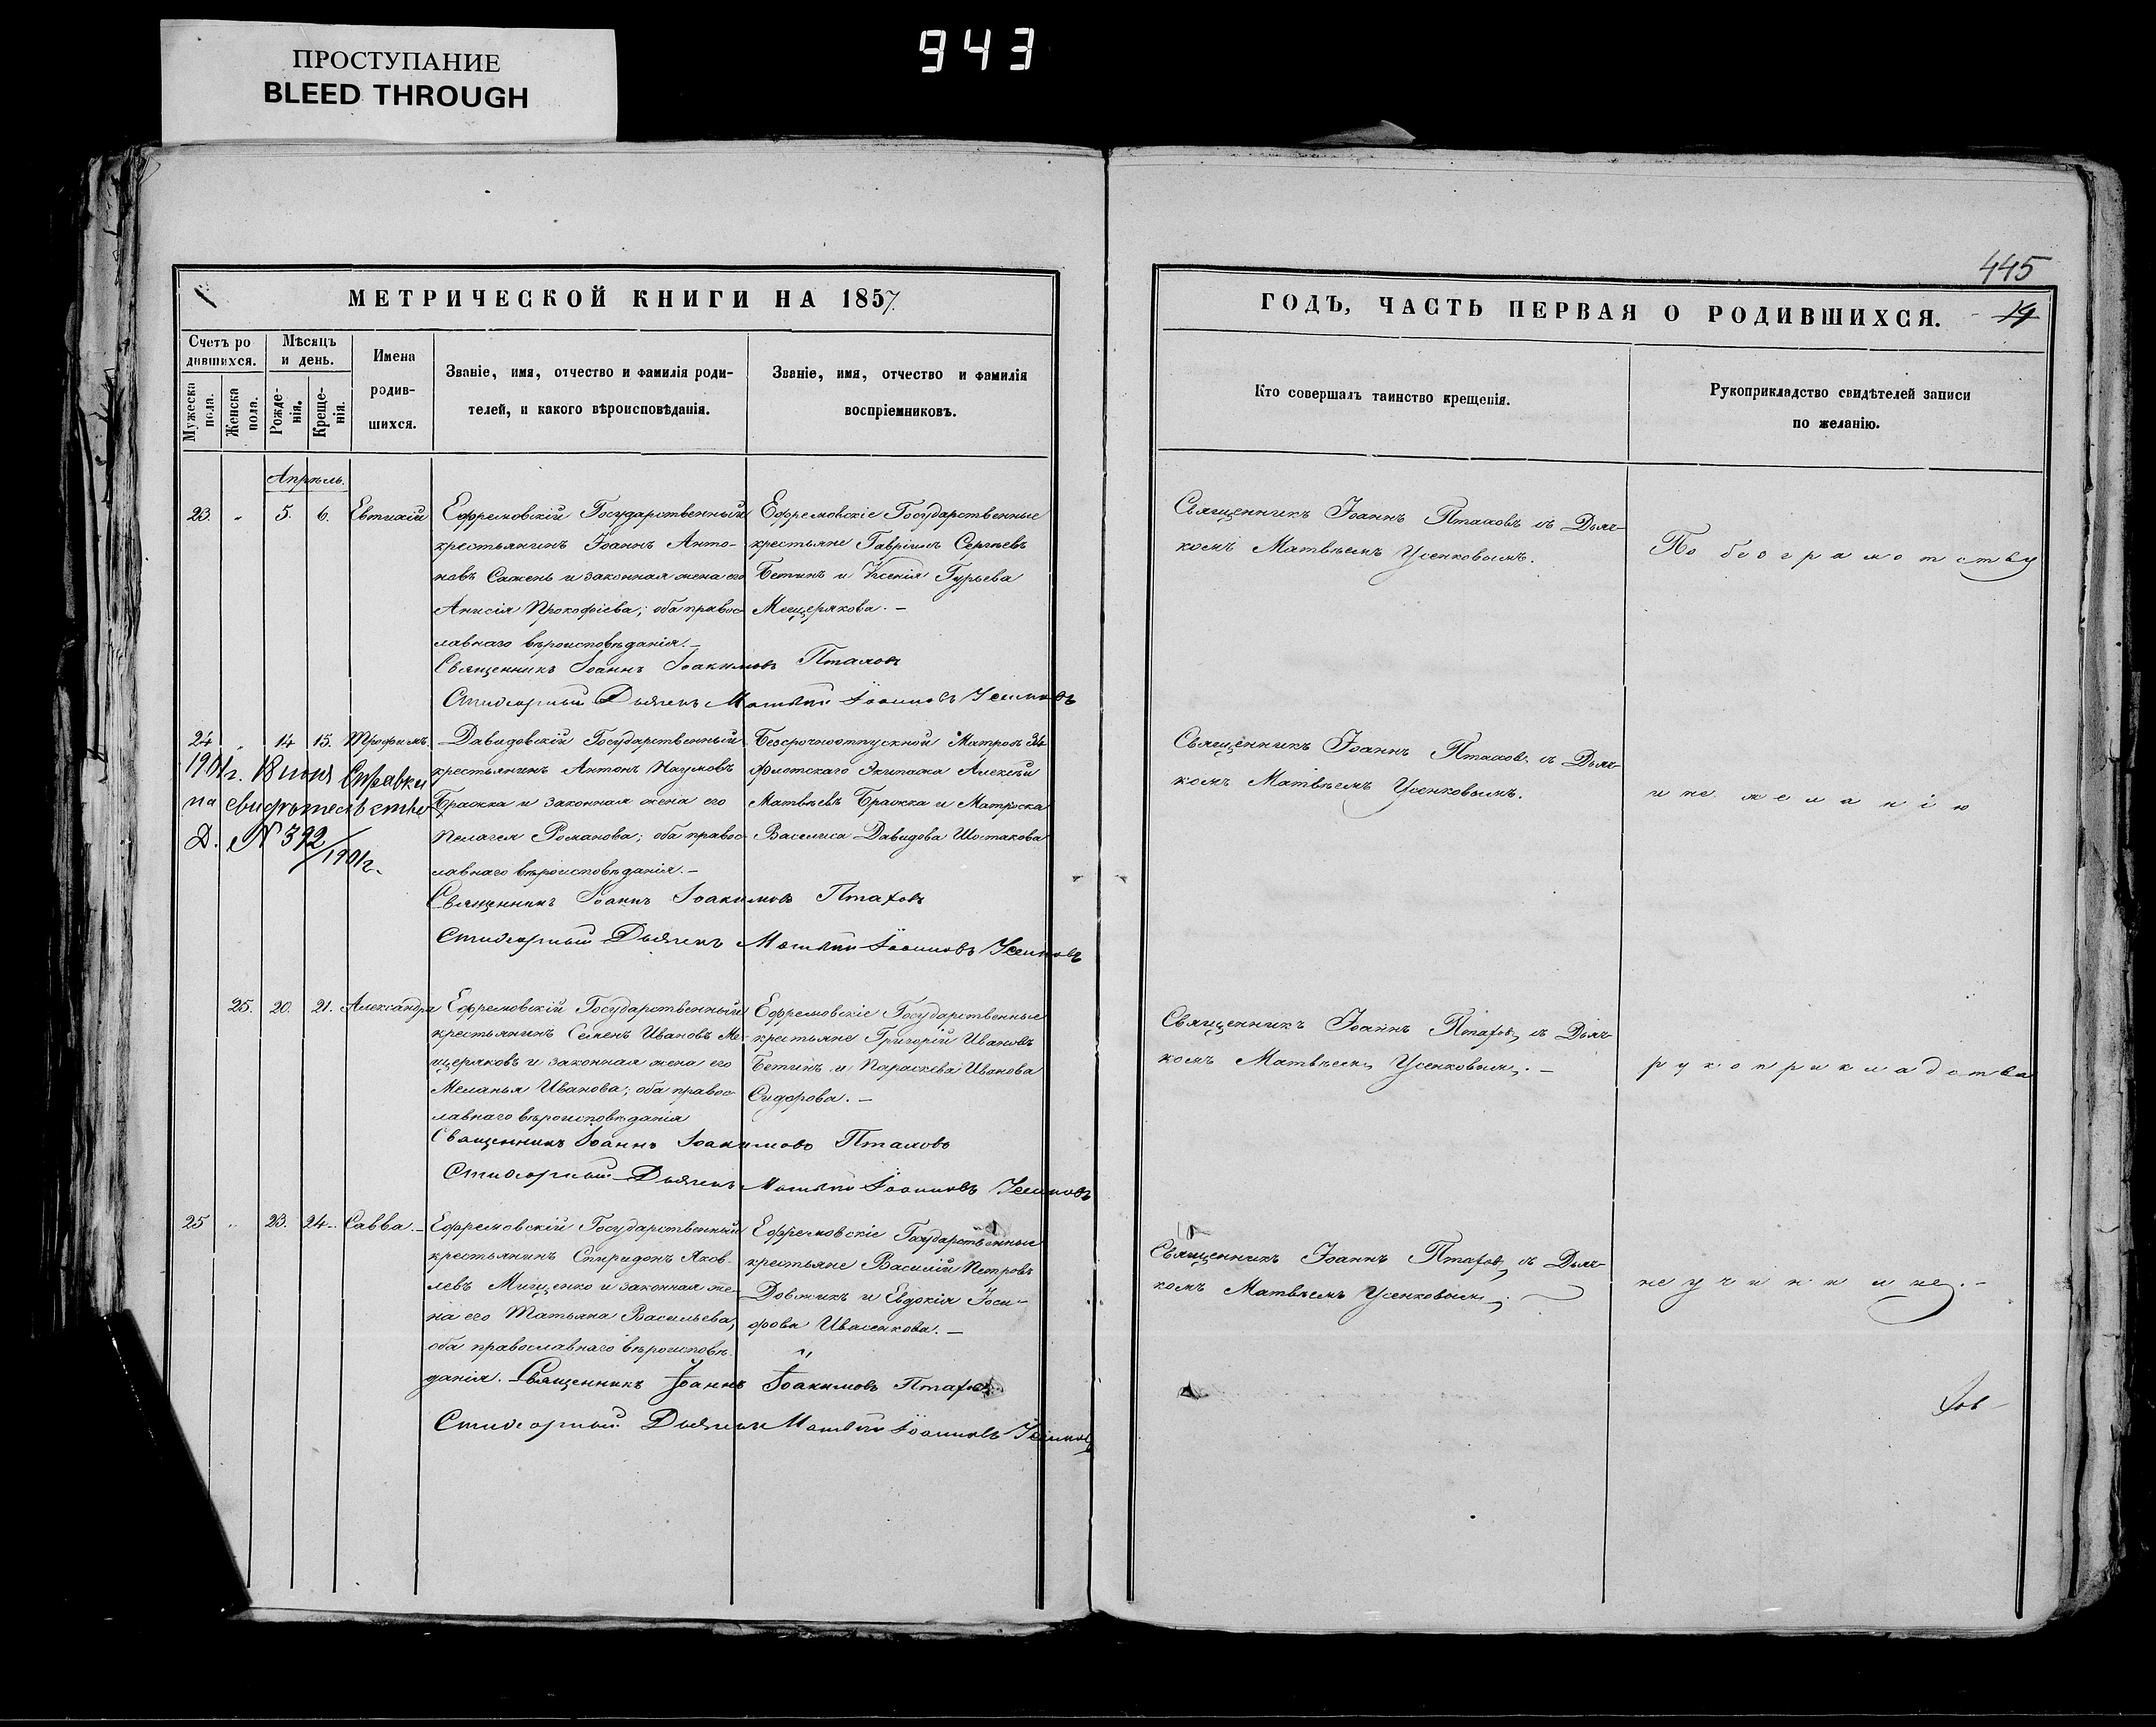 ПРОСТУПАНИЕ
BLEED THROUGH
943
МЕТРИЧЕСКОЙ КНИГИ НА 1857.
Счетъ ро
дившихся.
Мужеска
пола.
Женска
пола.
Мѣсяцъ
и день.
Рожде-
нія.
Креще-
нія.
Имена
родив-
шихся.
Званіе, имя, отчество и фамилія роди-
телей, и какого вѣроисповѣданія.
Званіе, имя, отчество и фамилія
воспріемниковъ.
Апрѣль.
23. „ 5. 6. Евтихій
Ефремовскій Государственный
крестьянинъ Іоаннъ Анто-
новъ Сажень и законная жена его
Анисія Прокофіева; оба правос
лавнаго вѣроисповѣданія.–
Ефремовскіе Государственные
крестьяне Гавріилъ Сергѣевъ
Бетинъ и Ксенія Гурьева
Мещерякова. –
Священникъ Іоаннъ Іоакимовъ Птаховъ
Стихарный Дьячекъ Матвѣй Іоанновъ Усенковъ
24 „ 14 15. Трофимъ.
Давидовскій Государственный
крестьянинъ Антонъ Наумовъ
Бражка и законная жена его
Пелагея Романова; оба правос-
лавнаго вѣроисповѣданія. –
Безсрочноотпускной Матросъ 34
флотскаго Экипажа Алексѣй
Матвѣевъ Бражка и Матроска
Василиса Давидова Шостакова
1901г. 18 июня Справки
на свидѣтельство
Д. № 392/1901г.
Священникъ Іоаннъ Іоакимовъ Птаховъ
Стихарный Дьячекъ Матвѣй Іоанновъ Усенковъ
25. 20. 21. Александра
Ефремовскій Государственный
крестьянинъ Семенъ Ивановъ Ме-
щеряковъ и законная жена его
Меланья Иванова; оба правос-
лавнаго вѣроисповѣданія
Ефремовскіе Государственные
крестьяне Григорій Ивановъ
Бетинъ и Параскева Иванова
Сидорова. –
Священникъ Іоаннъ Іоакимовъ Птаховъ
Стихарный Дьячекъ Матвѣй Іоанновъ Усенковъ
25 „ 23. 24. Савва. –
Ефремовскій Государственный
крестьянинъ Спиридонъ Яков-
левъ Мищенко и законная же-
на его Татьяна Васильева,
оба православнаго вѣроисповѣ-
данія.
Ефремовскіе Государственные
крестьяне Василій Петровъ
Довжикъ и Евдокія Іоси-
фова Ивасенкова. –
Священникъ Іоаннъ Іоакимовъ Птаховъ
Стихарный Дьячекъ Матвѣй Іоанновъ Усенковъ
445
ГОДЪ, ЧАСТЬ ПЕРВАЯ О РОДИВШИХСЯ.
19
Кто совершалъ таинство крещенія.
Рукоприкладство свидѣтелей записи
по желанію.
Священникъ Іоаннъ Птаховъ съ Дьяч-
комъ Матвѣемъ Усенковымъ.
По безграмотству
Священникъ Іоаннъ Птаховъ съ Дьяч-
комъ Матвѣемъ Усенковымъ.
и не желанію
Священникъ Іоаннъ Птаховъ съ Дьяч-
комъ Матвѣемъ Усенковымъ. –
рукоприкладства
Священникъ Іоаннъ Птаховъ съ Дьяч-
комъ Матвѣемъ Усенковымъ.
не учинили. –